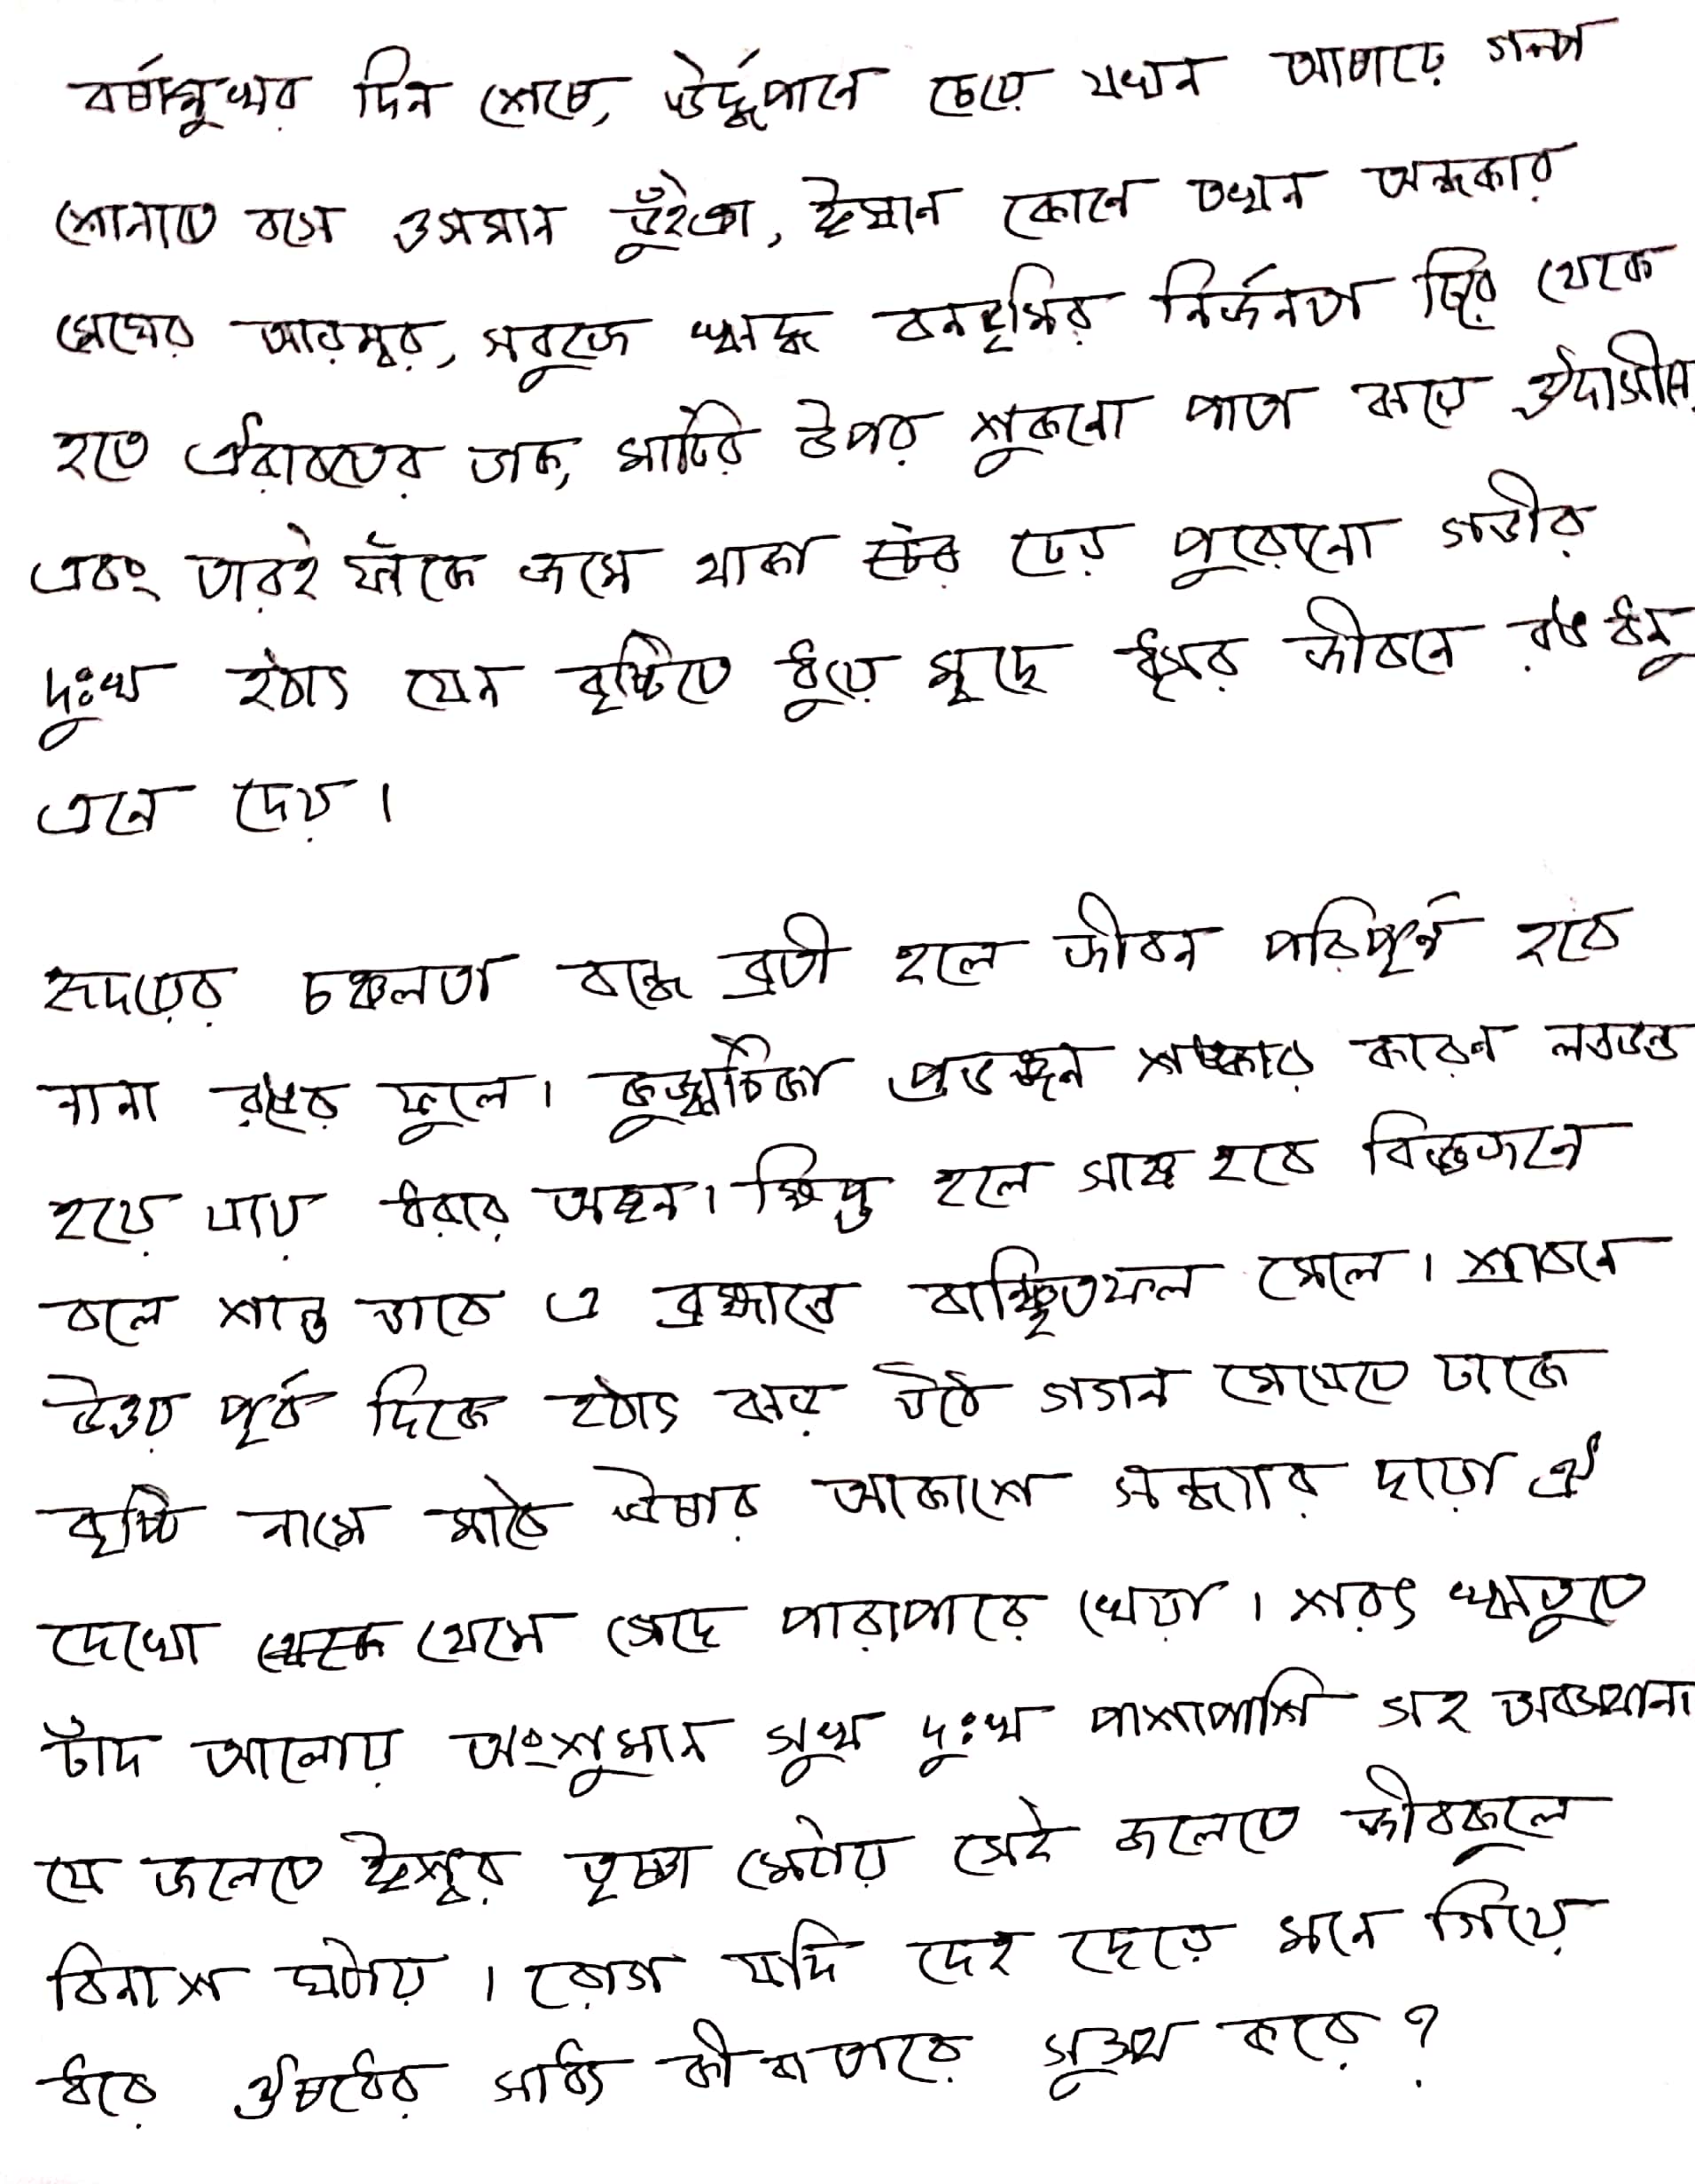 বর্ষামুখর দিন শেষে, উর্দ্ধপানে চেয়ে যখন আষাঢ়ে গল্প
শোনাতে বসে ওসমান ভুঁইঞা, ঈষান কোনে তখন অন্ধকার
মেঘের আড়ম্বর, সবুজে ঋদ্ধ বনভূমির নির্জনতা চিরে থেকে
হতে ঐরাবতের ডাক, মাটির উপর শুকনো পাতা ঝরে ঔদাসীন্য,
এবং তারই ফাঁকে জমে থাকা ঢের পুরোনো গভীর
দুঃখ হঠাৎ যেন বৃষ্টিতে ধুয়ে মুছে ধূসর জীবনে রঙ ধনু
এনে দেয়।
হৃদয়ের চঞ্চলতা বন্ধে ব্রতী হলে জীবন পরিপূর্ণ হবে
নানা রঙের ফুলে। কুজ্ঝটিকা প্রভঞ্জন শঙ্কার কারন লণ্ডভণ্ড
হয়ে যায় ধরার অঙ্গন। ক্ষিপ্ত হলে সাঙ্গ হবে বিজ্ঞজনে
বলে শান্ত ভাবে এ ব্রহ্মাণ্ডে বাঞ্ছিতফল মেলে। শ্রাবনে
উত্তর পূর্ব দিকে হঠাৎ ঝড় উঠে গগন মেঘেতে ঢাকে
বৃষ্টি নামে মাঠে ঊষার আকাশে সন্ধ্যার ছায়া ঐ
দেখো থেমে গেছে পারাপারে খেয়া। শরৎ ঋতুতে
চাঁদ আলোয় অংশুমান সুখ দুঃখ পাশাপাশি সহ অবস্থান।
যে জলেতে ঈশ্বর তৃষ্ণা মেটায় সেই জলেতে জীবকূলে
বিনাশ ঘটায়। রোগ যদি দেহ ছেড়ে মনে গিয়ে
ধরে ঔষধের সাধ্য কী বা তারে সুস্থ করে?